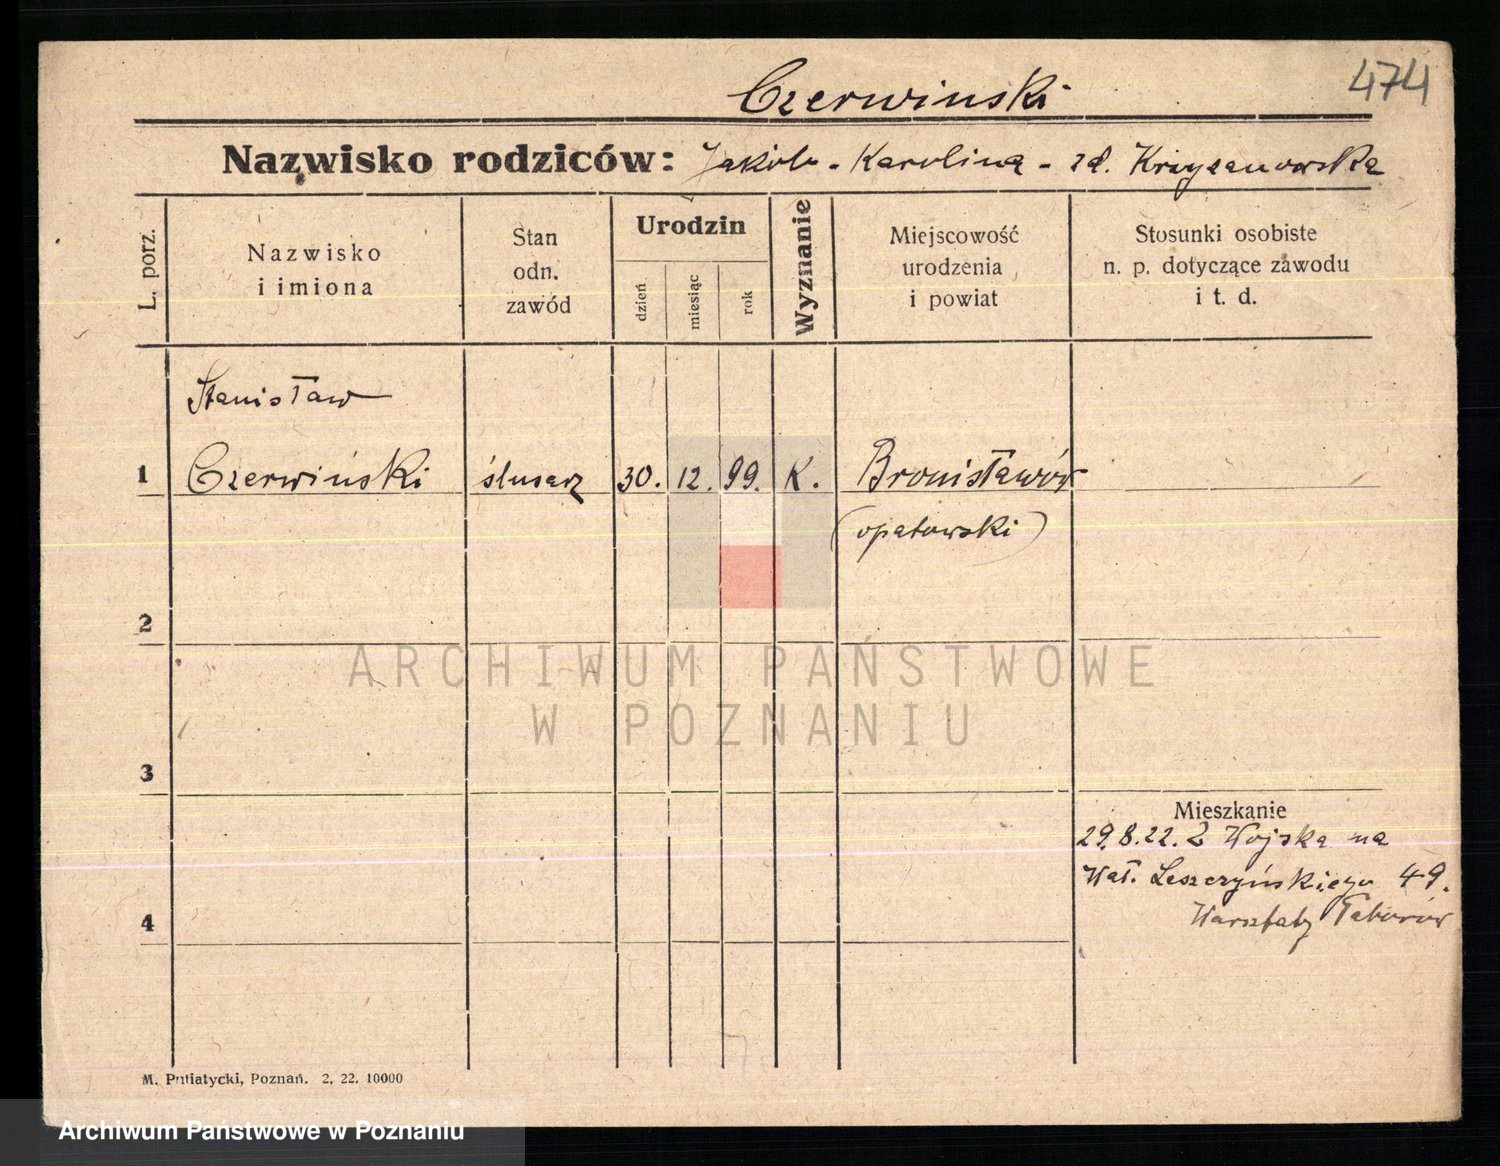 Czerwinski
474
Nazwisko rodziców: Jakób - Karolina - zd. Krzyżanowska
L. porz.
Nazwisko
i imiona
Stan
odn.
zawód
Urodzin
dzień
miesiąc
rok
Wyznanie
Miejscowość
urodzenia
i powiat
Stosunki osobiste
n. p. dotyczące zawodu
i t. d.
Stanisław
1 Czerwiński ślusarz 30. 12. 99. K. Bronisławów
(opatowski)
2
ARCHIWUM PAŃSTWOWE
W POZNANIU
3
Mieszkanie
29.8.22. Z Wojska na
Wał. Leszczyńskiego 49.
Warsztaty Taborów
4
M. Putiatycki, Poznań. 2. 22. 10000
Archiwum Państwowe w Poznaniu